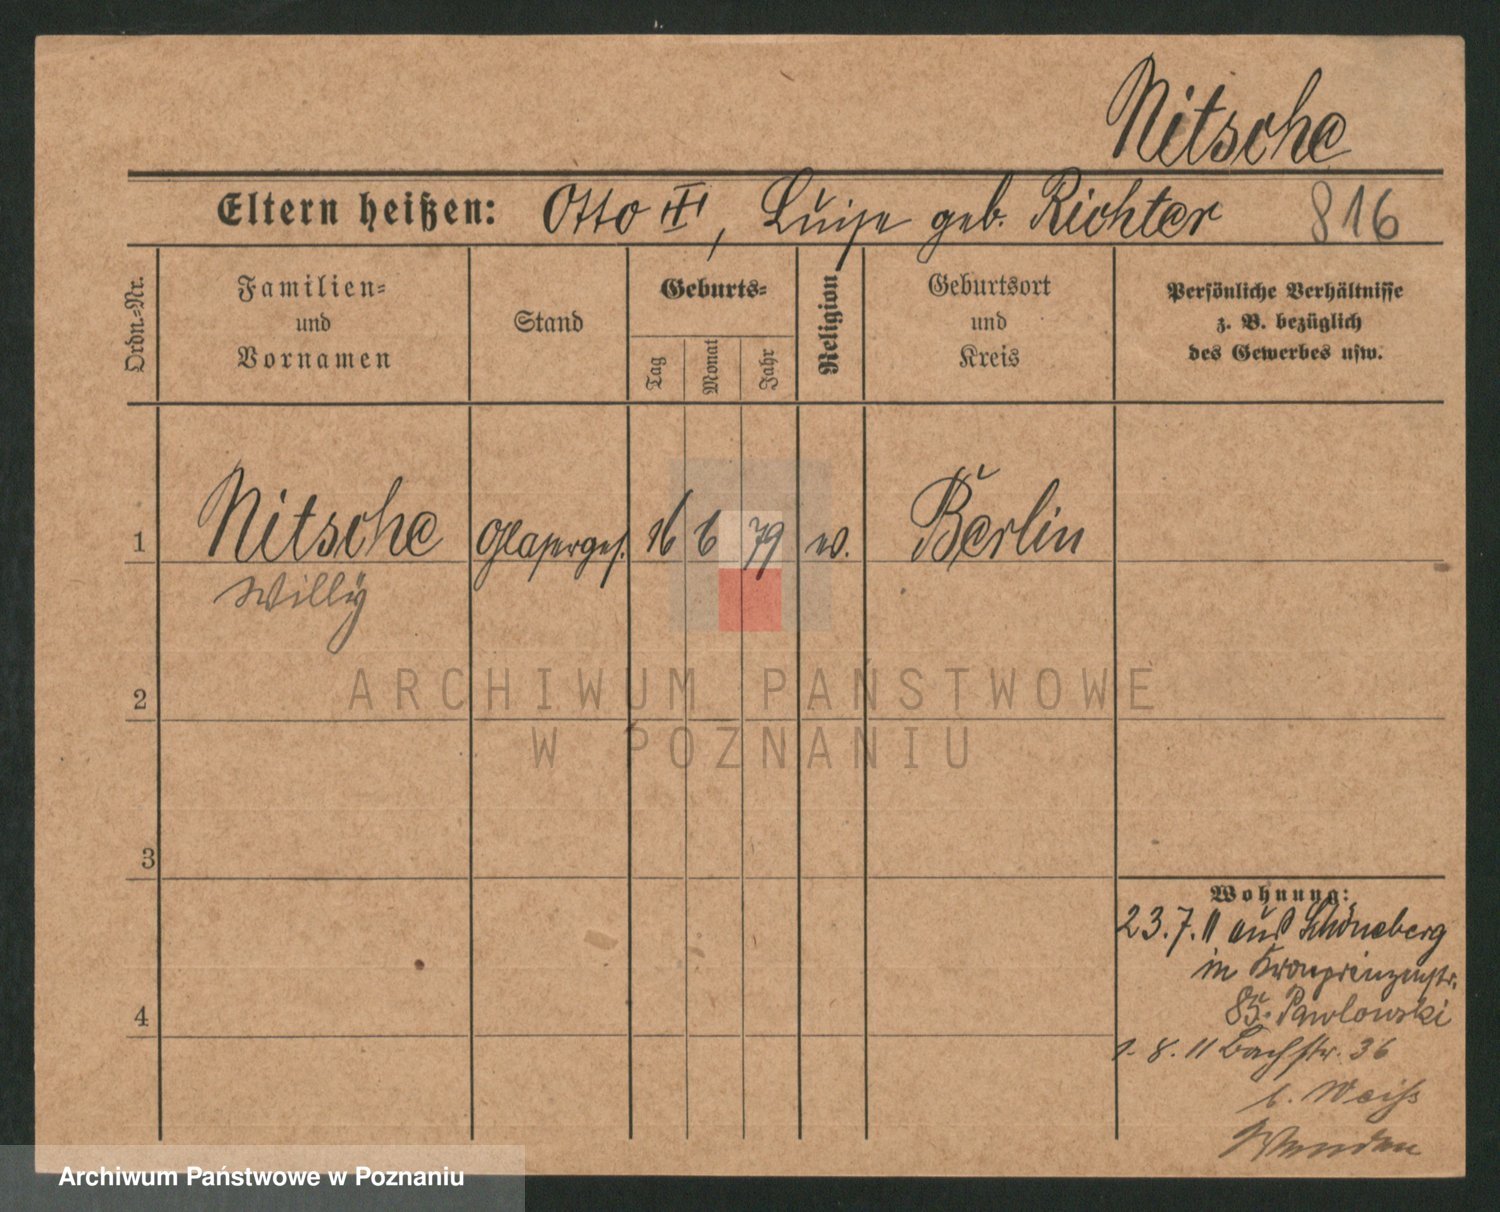 Nitsche
Eltern heißen: Otto ✝, Luise geb. Richter 816
Ordn.-Nr.
Familien-
und
Vornamen
Stand
Geburts-
Tag
Monat
Jahr
Religion
Geburtsort
und
Kreis
Persönliche Verhältnisse
z. B. bezüglich
des Gewerbes usw.
1 Nitsche Glaserges. 16 6 79 ev. Berlin
Willy
ARCHIWUM PAŃSTWOWE
W POZNANIU
2
3
4
Wohnung:
23.7.11 aus Schöneberg
in Kronprinzenstr.
85. Pawlowski
1.8.11 Bachstr. 36
b. Weiss
Wenden
Archiwum Państwowe w Poznaniu